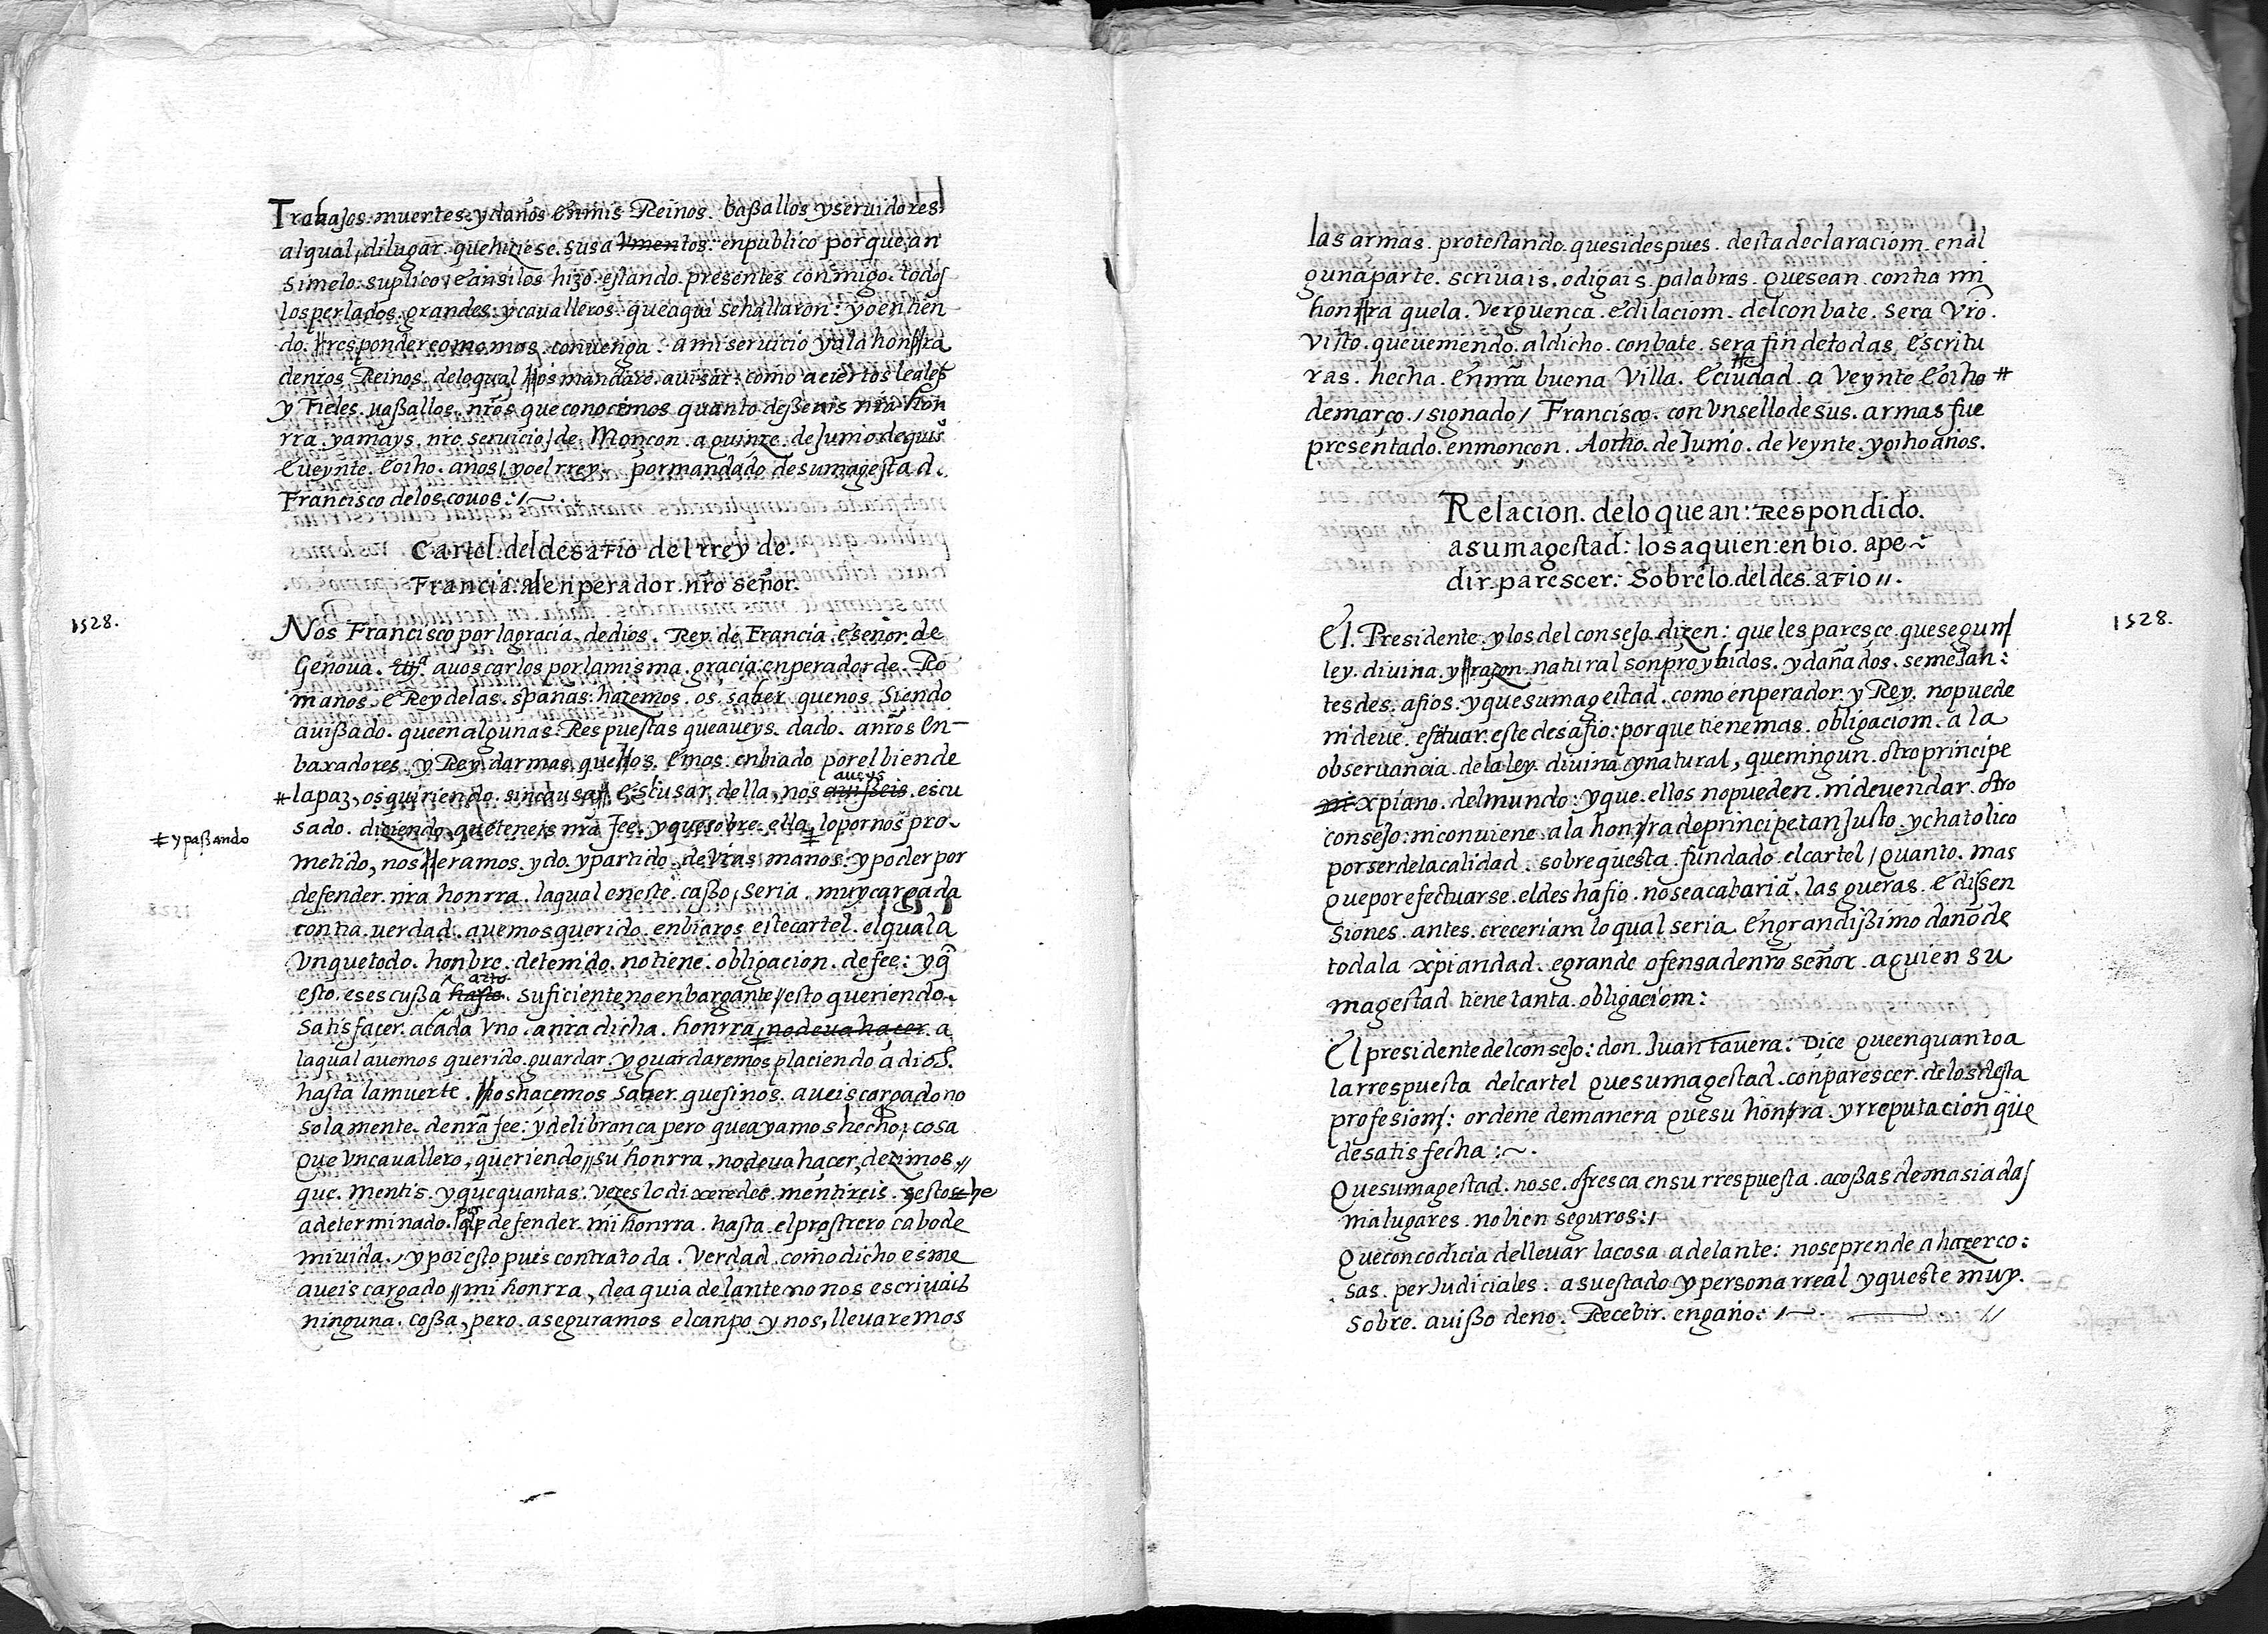 Trabajos. muertes. y daños en mis Reinos. baßallos y seruidores
al qual, di lugar. que hiziese. sus a vmentos: en publico porque, an
si me lo: suplico, e ansi los hizo. estando. presentes conmigo. todos
los perlados. grandes: y caualleros. que aqui se hallaron: yo entien
do. rresponder como mas. convenga. a mi seruicio y a la honrra
de nros Reinos. de lo qual hos mandare. auisar: como a ciertos leales
y Fieles. uaßallos. nros que conocemos quanto deßeais nra hon
rra. y amays. nro seruicio / de. Monçon. a quinze. de Junio de quis
e ueynte. e ocho. años / yo el rrey. por mandado de su magestad.
Francisco de los. couos: /~
Cartel. del desafio del rrey de.
Francia: al enperador. nro señor.
1528.
Nos Francisco por la gracia. de dios. Rey. de Francia. e señor. de
Genoua. a uos carlos por la misma. gracia: enperador de. Ro
manos. e Rey de las. spañas: hazemos. os. saber. que nos. siendo
auißado. que en algunas: Respuestas que aueys. dado. a nros en-
baxadores. y Rey. darmas. que hos. emos. enbiado por el bien de
# la paz, os quiriendo. sin causa escusar. della, nos auißeis aueys. escu
sado. diciendo, que teneis nra fee. y que sobre. ella # lo por nos pro-
# y paßando
metido, nos heramos. ydo. y partido. de vras manos: y poder por
defender. nra honrra. la qual en este. caßo, seria. muy cargada
contra. uerdad. auemos querido. enbiaros este cartel. el qual a
vnque todo. honbre. detenido. no tiene. obligacion. de fee: y q̃
esto. es escußa haste arto. suficiente no enbargante // esto queriendo.
satisfacer. a cada vno. a nra dicha. honrra, no deua hacer. a
la qual auemos querido. guardar. y guardaremos placiendo a dios.
hasta la muerte. hos hacemos saber. que si nos. aueis cargado no
solamente. de nra fee: y delibrança pero que ayamos hecho, cosa
que vn cauallero, queriendo // su honrra. no deua hacer, dezimos, //
que. mentis. y que quantas. vezes lo dixeredes. mentireis. y esto se he
a determinado. por defender. mi honrra. hasta. el prostrero cabo de
mi uida. / y por esto pues contra toda. verdad. como dicho es me
aueis cargado // mi honrra, de a qui a delante no nos escriuais
ninguna. coßa, pero. aseguramos el canpo y nos, lleuaremos
las armas. protestando. que si despues. desta declaraciom. en al
guna parte. scriuais, o digais. palabras. que sean. contra mi
honrra que la. verguença. e dilaciom. del conbate. sera vro.
visto. que uemendo. al dicho. conbate. sera fin de todas escritu
ras. hecha. en nra buena villa. e ciudad # a veynte e ocho #
de março. / signado / Francisco. con vn sello de sus. armas fue
presentado. en monçon. A ocho. de Junio. de veynte. y ocho años.
Relacion. de lo que an: Respondido.
a su magestad: los a quien: enbio. a pe~
dir. parescer. sobre lo. del des. afio //.
1528.
El. Presidente. y los del consejo. dizen: que les paresce. que segun
ley. divina. y razon. natural son proybidos. y dañados. semejan:
tes des. afios. y que su magestad. como enperador. y Rey. no puede
ni deue. efetuar. este desafio: porque tiene mas. obligaciom. a la
obseruancia. de la ley. diuina. y natural, que ningun. otro principe
ni xpiano. del mundo: y que. ellos no pueden. ni deuen dar. otro
consejo: ni conuiene. a la honrra de principe tan Justo. y chatolico
por ser de la calidad. sobre questa. fundado. el cartel / quanto. mas
que por efectuarse. el des hafio. no se acabaria. las gueras. e dissen
siones. antes. creceriam lo qual seria. en grandißimo daño de
toda la xpiandad. e grande ofensa de nro señor. a quien su
magestad tiene tanta. obligaciom:
El presidente del consejo: don. Juan tauera: Dice que en quanto a
la rrespuesta del cartel que su magestad. con parescer. de los desta
profesion: ordene de manera que su honrra. y rreputacion que
de satisfecha: ~.
Que su magestad. no se. ofresca en su rrespuesta. a coßas demasiadas
ni a lugares. no bien seguros: /
Que con codicia de lleuar la cosa adelante: no se prende a hazer co:
sas. perJudiciales. a su estado y persona rreal y queste muy.
sobre. auißo de no. Recebir. engaño: /~. //